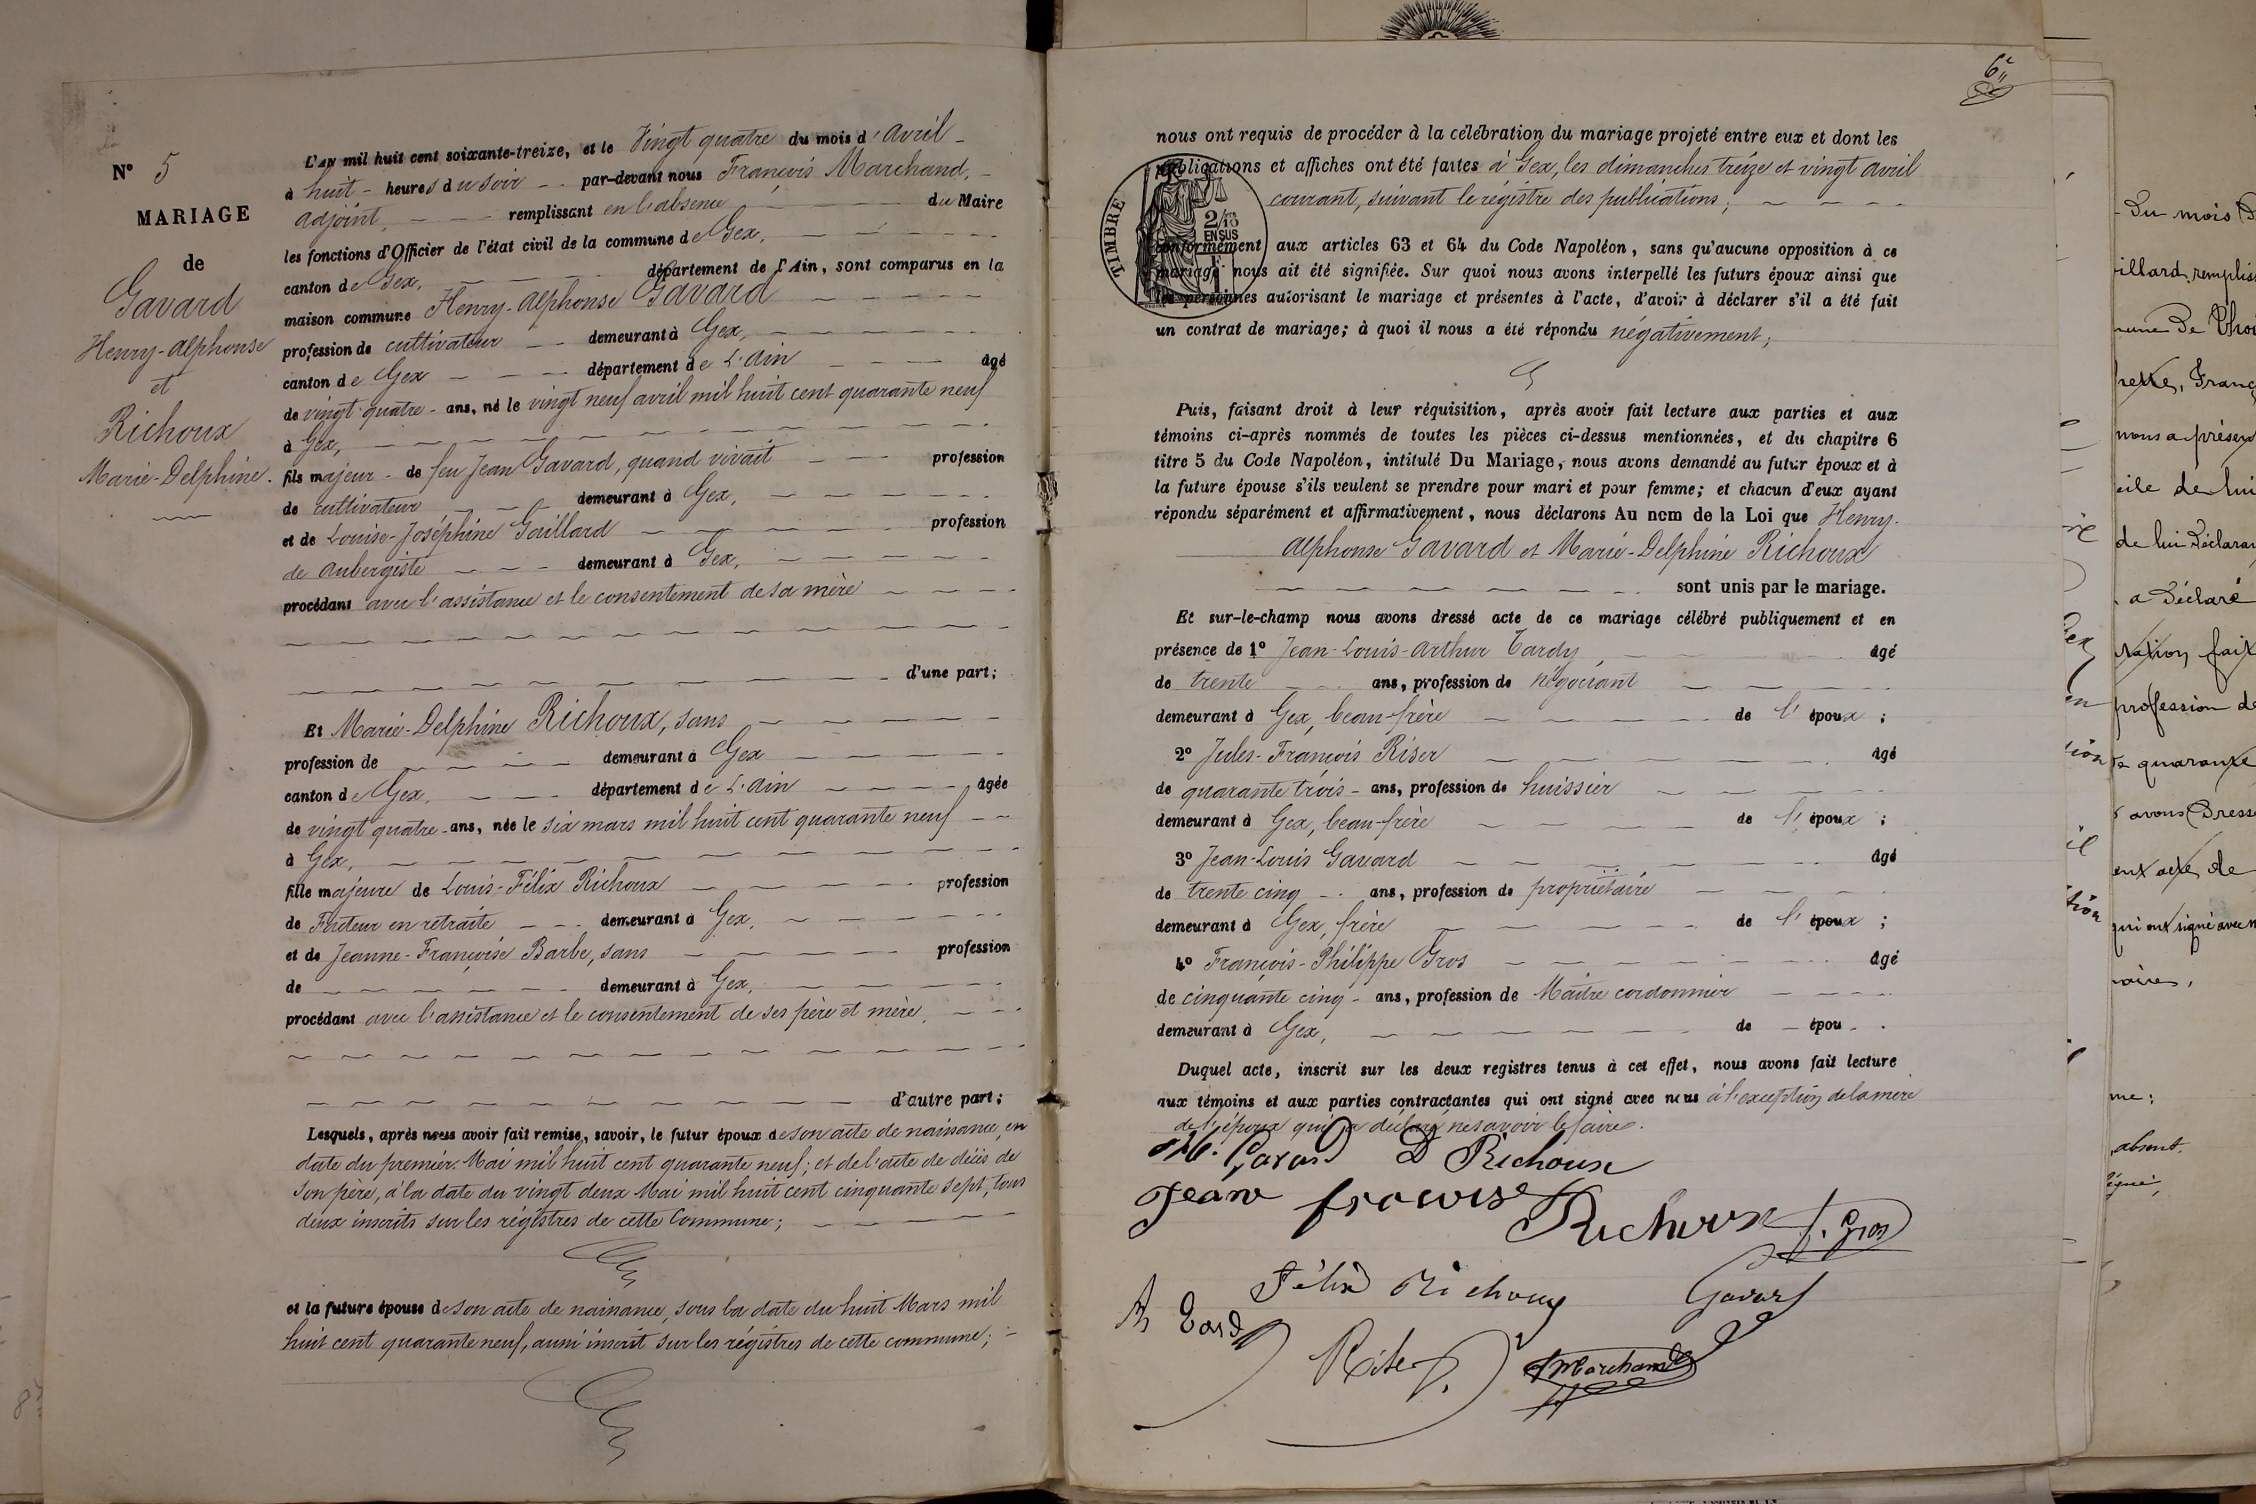 N° 5
MARIAGE
de
Gavard
Henry-Alphonse
et
Richoux
Marie-Delphine.
L'an mil huit cent soixante-treize, et le Vingt quatre du mois d'avril
à huit heures du soir par-devant nous François Marchand,
adjoint, remplissant en l'absence du Maire
les fonctions d'Officier de l'état civil de la commune de Gex,
canton de Gex, département de l'Ain, sont comparus en la
maison commune Henry-Alphonse Gavard
profession de cultivateur demeurant à Gex,
canton de Gex département de L'Ain âgé
de vingt quatre ans, né le vingt neuf avril mil huit cent quarante neuf
à Gex,
fils majeur de feu Jean Gavard, quand vivait profession
de cultivateur demeurant à Gex,
et de Louise-Joséphine Gaillard profession
de Aubergiste demeurant à Gex,
procédant avec l'assistance et le consentement de sa mère
d'une part;
Et Marie-Delphine Richoux, sans
profession de demeurant à Gex
canton de Gex, département de L'Ain âgée
de vingt quatre ans, née le six mars mil huit cent quarante neuf
à Gex,
fille majeure de Louis-Félix Richoux profession
de Facteur en retraite demeurant à Gex,
et de Jeanne-Françoise Barbe, sans profession
de demeurant à Gex,
procédant avec l'assistance et le consentement de ses père et mère,
d'autre part;
Lesquels, après nous avoir fait remise, savoir, le futur époux de son acte de naissance, en
date du premier Mai mil huit cent quarante neuf; et de l'acte de décès de
son père, à la date du vingt deux Mai mil huit cent cinquante sept, tous
deux inscrits sur les régistres de cette Commune;
et la future épouse de son acte de naissance, sous la date du huit Mars mil
huit cent quarante neuf, aussi inscrit sur les régistres de cette commune;
nous ont requis de procéder à la célébration du mariage projeté entre eux et dont les
publications et affiches ont été faites à Gex, les dimanches treize et vingt avril
courant, suivant le régistre des publications;
TIMBRE
2/10
EN SUS
conformément aux articles 63 et 64 du Code Napoléon, sans qu'aucune opposition à ce
mariage nous ait été signifiée. Sur quoi nous avons interpellé les futurs époux ainsi que
les personnes autorisant le mariage et présentes à l'acte, d'avoir à déclarer s'il a été fait
un contrat de mariage; à quoi il nous a été répondu négativement;
Puis, faisant droit à leur réquisition, après avoir fait lecture aux parties et aux
témoins ci-après nommés de toutes les pièces ci-dessus mentionnées, et du chapitre 6
titre 5 du Code Napoléon, intitulé Du Mariage, nous avons demandé au futur époux et à
la future épouse s'ils veulent se prendre pour mari et pour femme; et chacun d'eux ayant
répondu séparément et affirmativement, nous déclarons Au nom de la Loi que Henry-
Alphonse Gavard et Marie-Delphine Richoux
sont unis par le mariage.
Et sur-le-champ nous avons dressé acte de ce mariage célébré publiquement et en
présence de 1° Jean-Louis-Arthur Tardy, âgé
de trente ans, profession de négociant
demeurant à Gex, beau-frère de l'époux;
2° Jules-François Riser âgé
de quarante trois ans, profession de huissier
demeurant à Gex, beau-frère de l'époux;
3° Jean-Louis Gavard âgé
de trente cinq ans, profession de propriétaire
demeurant à Gex, frère de l'époux;
4° François-Philippe Gros âgé
de cinquante cinq ans, profession de Maître cordonnier
demeurant à Gex, de épou
Duquel acte, inscrit sur les deux registres tenus à cet effet, nous avons fait lecture
aux témoins et aux parties contractantes qui ont signé avec nous à l'exception de la mère
de l'époux qui a déclaré ne savoir le faire.
Gavard D Richoux
Jean francoise Richoux f. Gros
Félix Richoux Gavard
A Tardy Riser Marchand
Du mois D
illard, remplis
nous a présen
cile de lui
de lui Déclara
a Déclaré
profession de
quarante
avons Dress
acte de
qui ont signé avec n
absent.